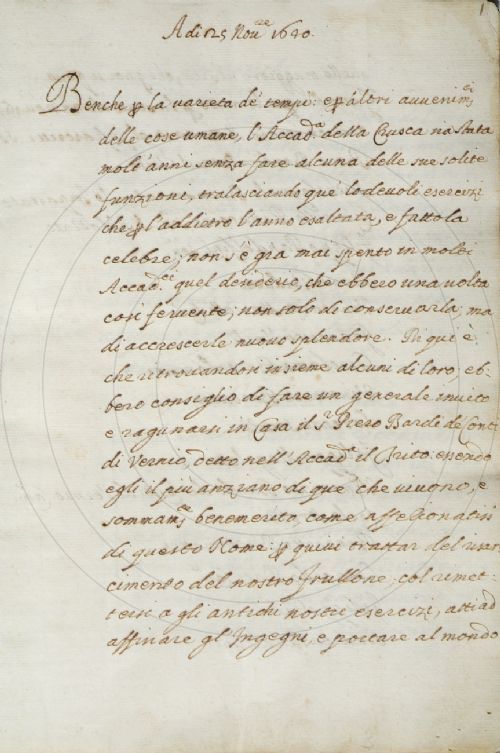 1
A di 25 Nou.re 1640.
Benche p la uarieta de tempi: e p altri auuenim.ti
delle cose umane, l'Accad.a della Crusca sia stata
molt'anni senza fare alcuna delle sue solite
funzioni, tralasciando que lodeuoli esercizi
che p l'addietro l'anno esaltata, e fattola
celebre; non s'è gia mai spento in molti
Accad.ci quel desiderio, che ebbero una uolta
cosi feruente; non solo di conseruarla, ma
di accrescerle nuouo splendore. Di qui è
che ritrouandosi insieme alcuni di loro, eb-
bero consiglio di fare un generale inuito
e ragunarsi in Casa il S.r Piero Bardi de Conti
di Vernio, detto nell'Accad.a il Trito essendo
egli il più anziano di que che uiuono, e
sommam.te benemerito, come affezionatiss
di questo Nome: p quiui trattar del
cimento del nostro Frullone, col rimet-
tersi a gli antichi nostri esercizi, atti ad
affinare gl'Ingegni, e al mondo